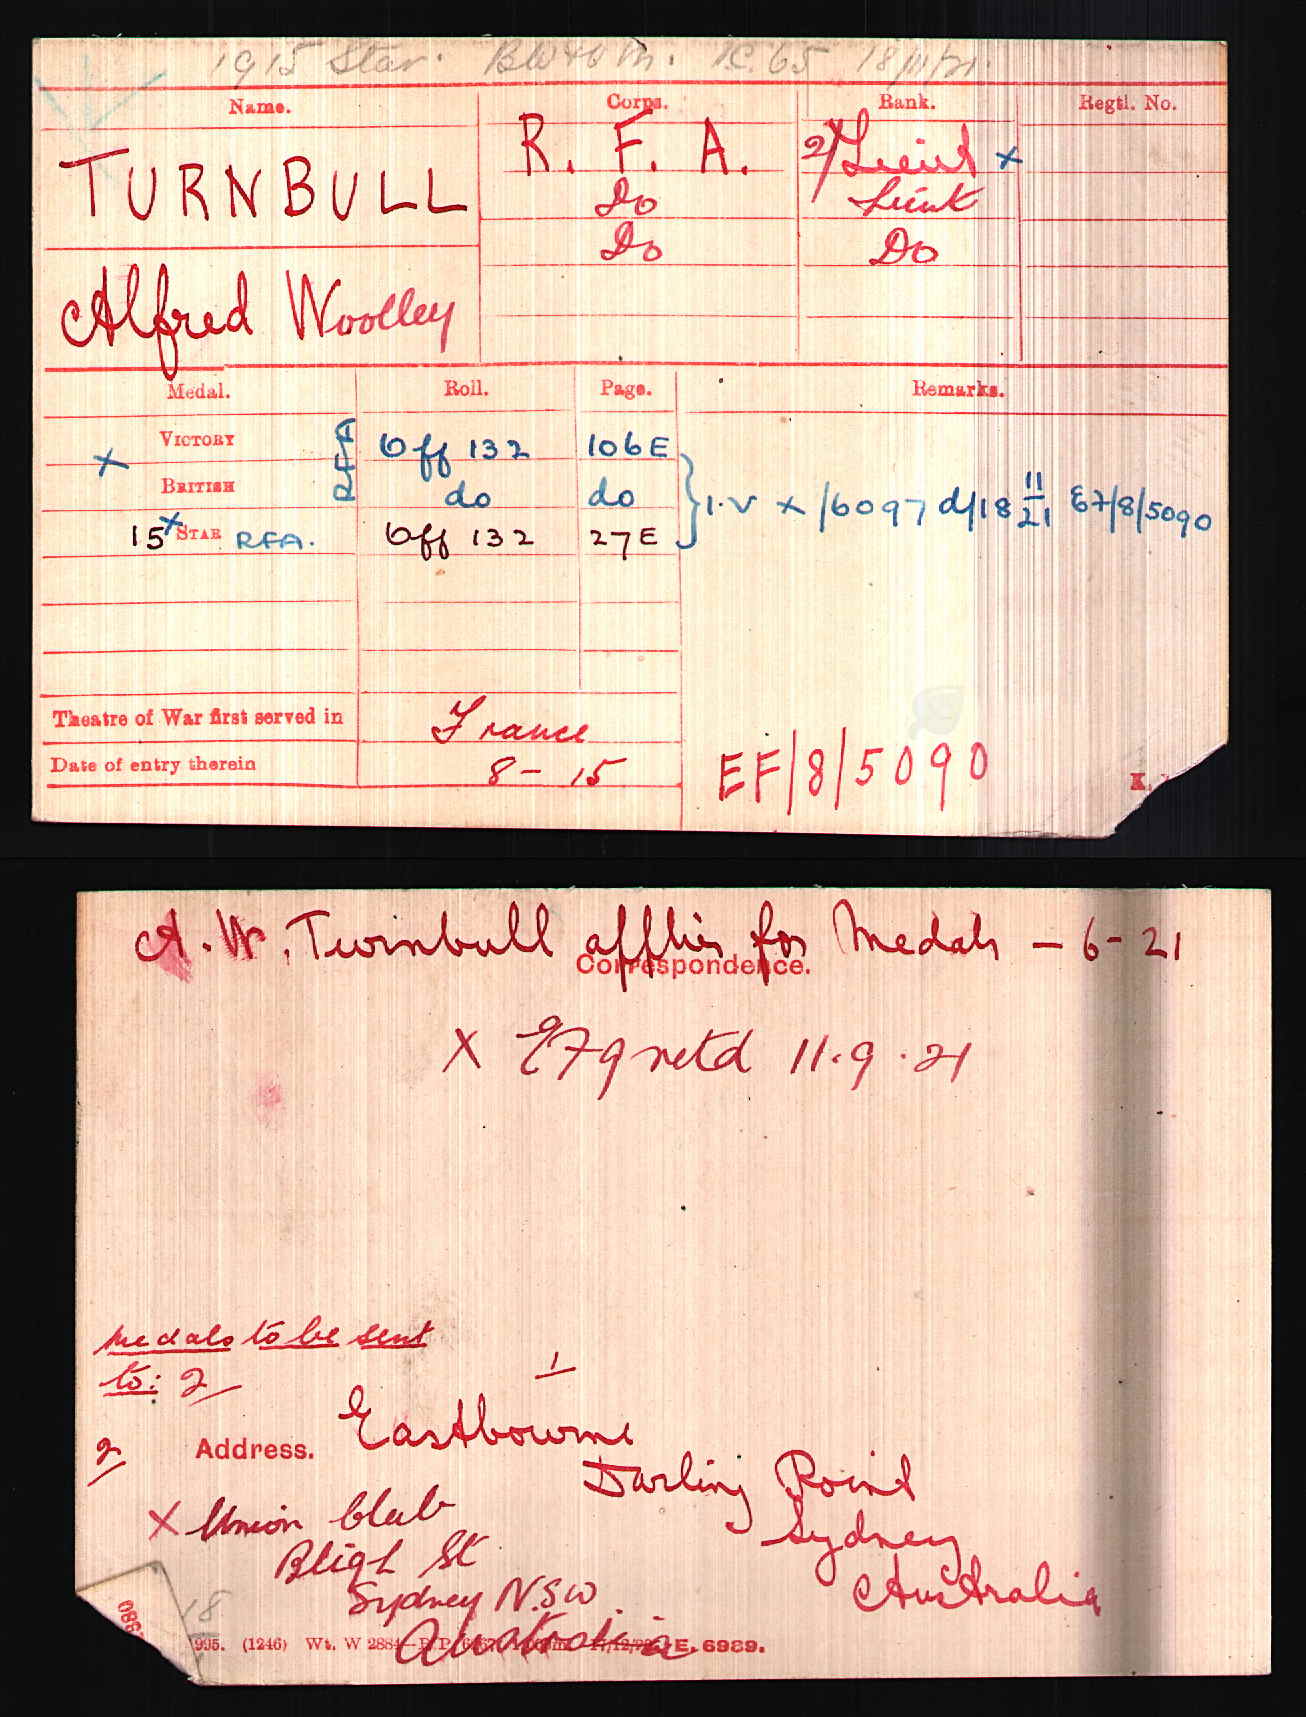 1915 Star. BW&VM. IC. 65 18/11/21.
Name. Corps. Rank. Regtl. No.
TURNBULL R. F. A. 2/Lieut x
Do Lieut
Do Do
Alfred Woolley
Medal. Roll. Page. Remarks.
VICTORY RFA Off 132 106E
x
BRITISH do do
I.V x /6097 d/18 11/21 EF/8/5090
15 x STAR RFA. Off 132 27E
Theatre of War first served in France
Date of entry therein 8 - 15
EF/8/5090
K.
A. W. Turnbull applies for Medals - 6 - 21
Correspondence.
X EF9 retd 11.9.21
Medals to be sent
to: 2
1
Eastbourne
2 Address.
Darling Point
X Union Club
Sydney
Bligh St
Australia
Sydney N.S.W.
18
Australia
995. (1246) Wt. W 2884 E. 6989.